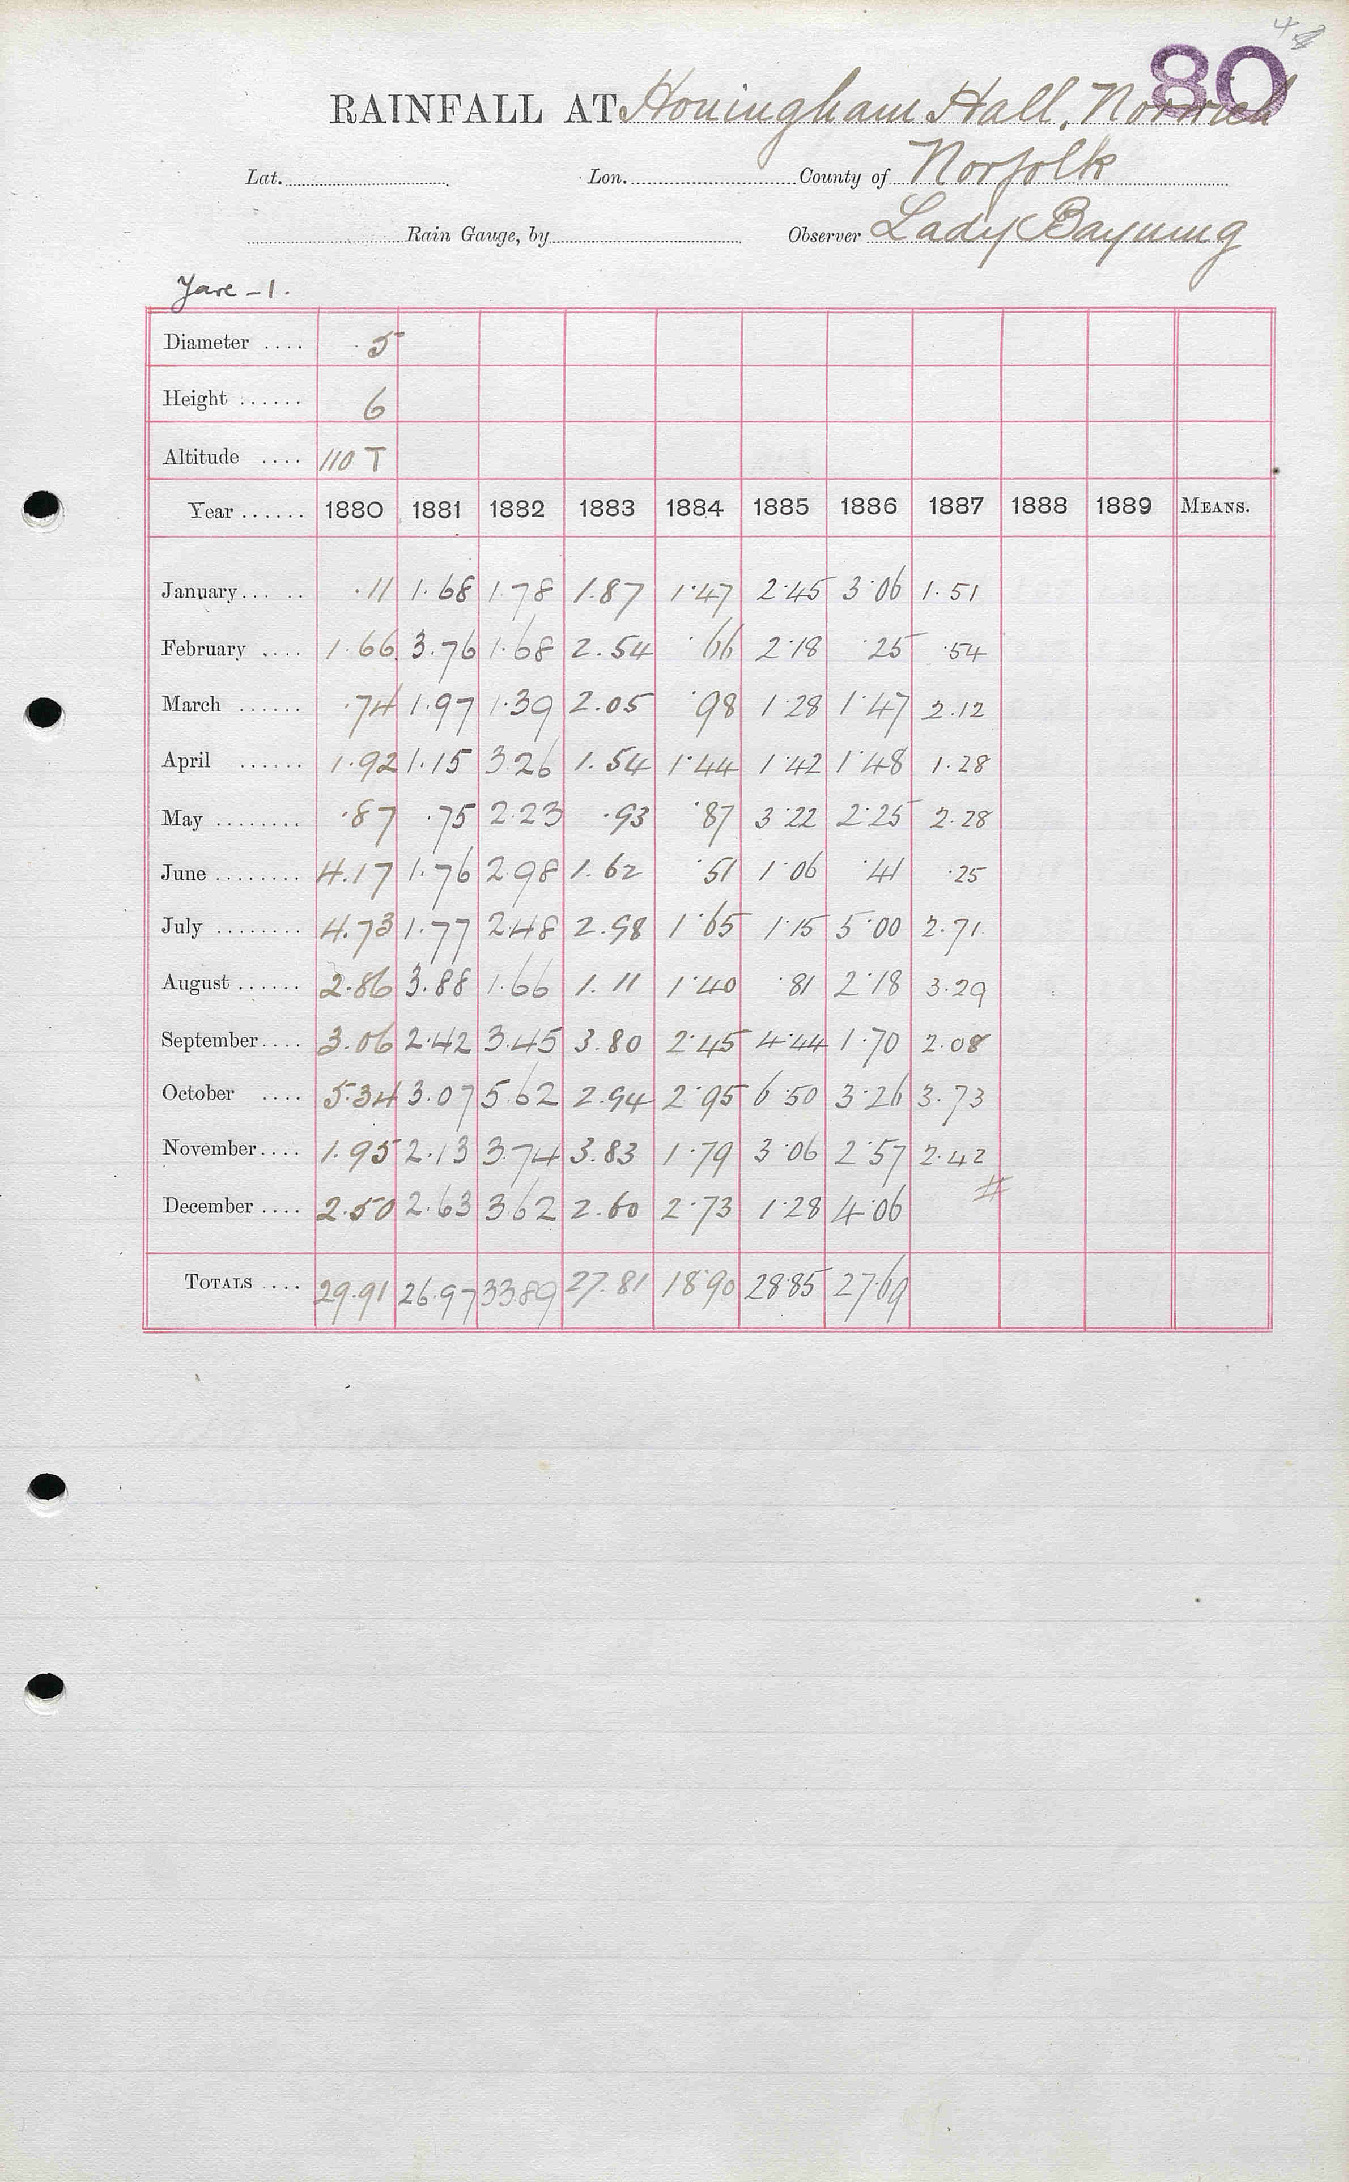 48
80
RAINFALL AT Honingham Hall, Norwich
Lat. Lon. County of Norfolk
Rain Gauge, by Observer Lady Bayning
Yare - 1.
Diameter .... 5
Height ...... 6
Altitude .... 110 T
Year ...... 1880 1881 1882 1883 1884 1885 1886 1887 1888 1889 MEANS.
January... .. ·11 1·68 1·78 1.87 1·47 2·45 3·06 1·51
February .... 1·66 3·76 1·68 2.54 ·66 2·18 ·25 ·54
March ...... ·74 1·97 1·39 2.05 ·98 1·28 1·47 2.12
April ...... 1·92 1·15 3.26 1.54 1·44 1·42 1·48 1.28
May ........ ·87 ·75 2.23 ·93 ·87 3·22 2·25 2.28
June ........ 4.17 1.76 2.98 1.62 ·51 1·06 ·41 ·25
July ........ 4.73 1.77 2.48 2.98 1·65 1·15 5·00 2.71
August ...... 2.86 3.88 1.66 1.11 1·40 ·81 2·18 3.29
September.... 3.06 2.42 3.45 3.80 2·45 4·44 1·70 2.08
October .... 5.34 3.07 5.62 2.94 2·95 6·50 3·26 3.73
November.... 1.95 2.13 3.74 3.83 1·79 3·06 2·57 2.42
December .... 2.50 2.63 3.62 2.60 2·73 1·28 4·06 #
TOTALS .... 29.91 26.97 33.89 27.81 18.90 28.85 27.69